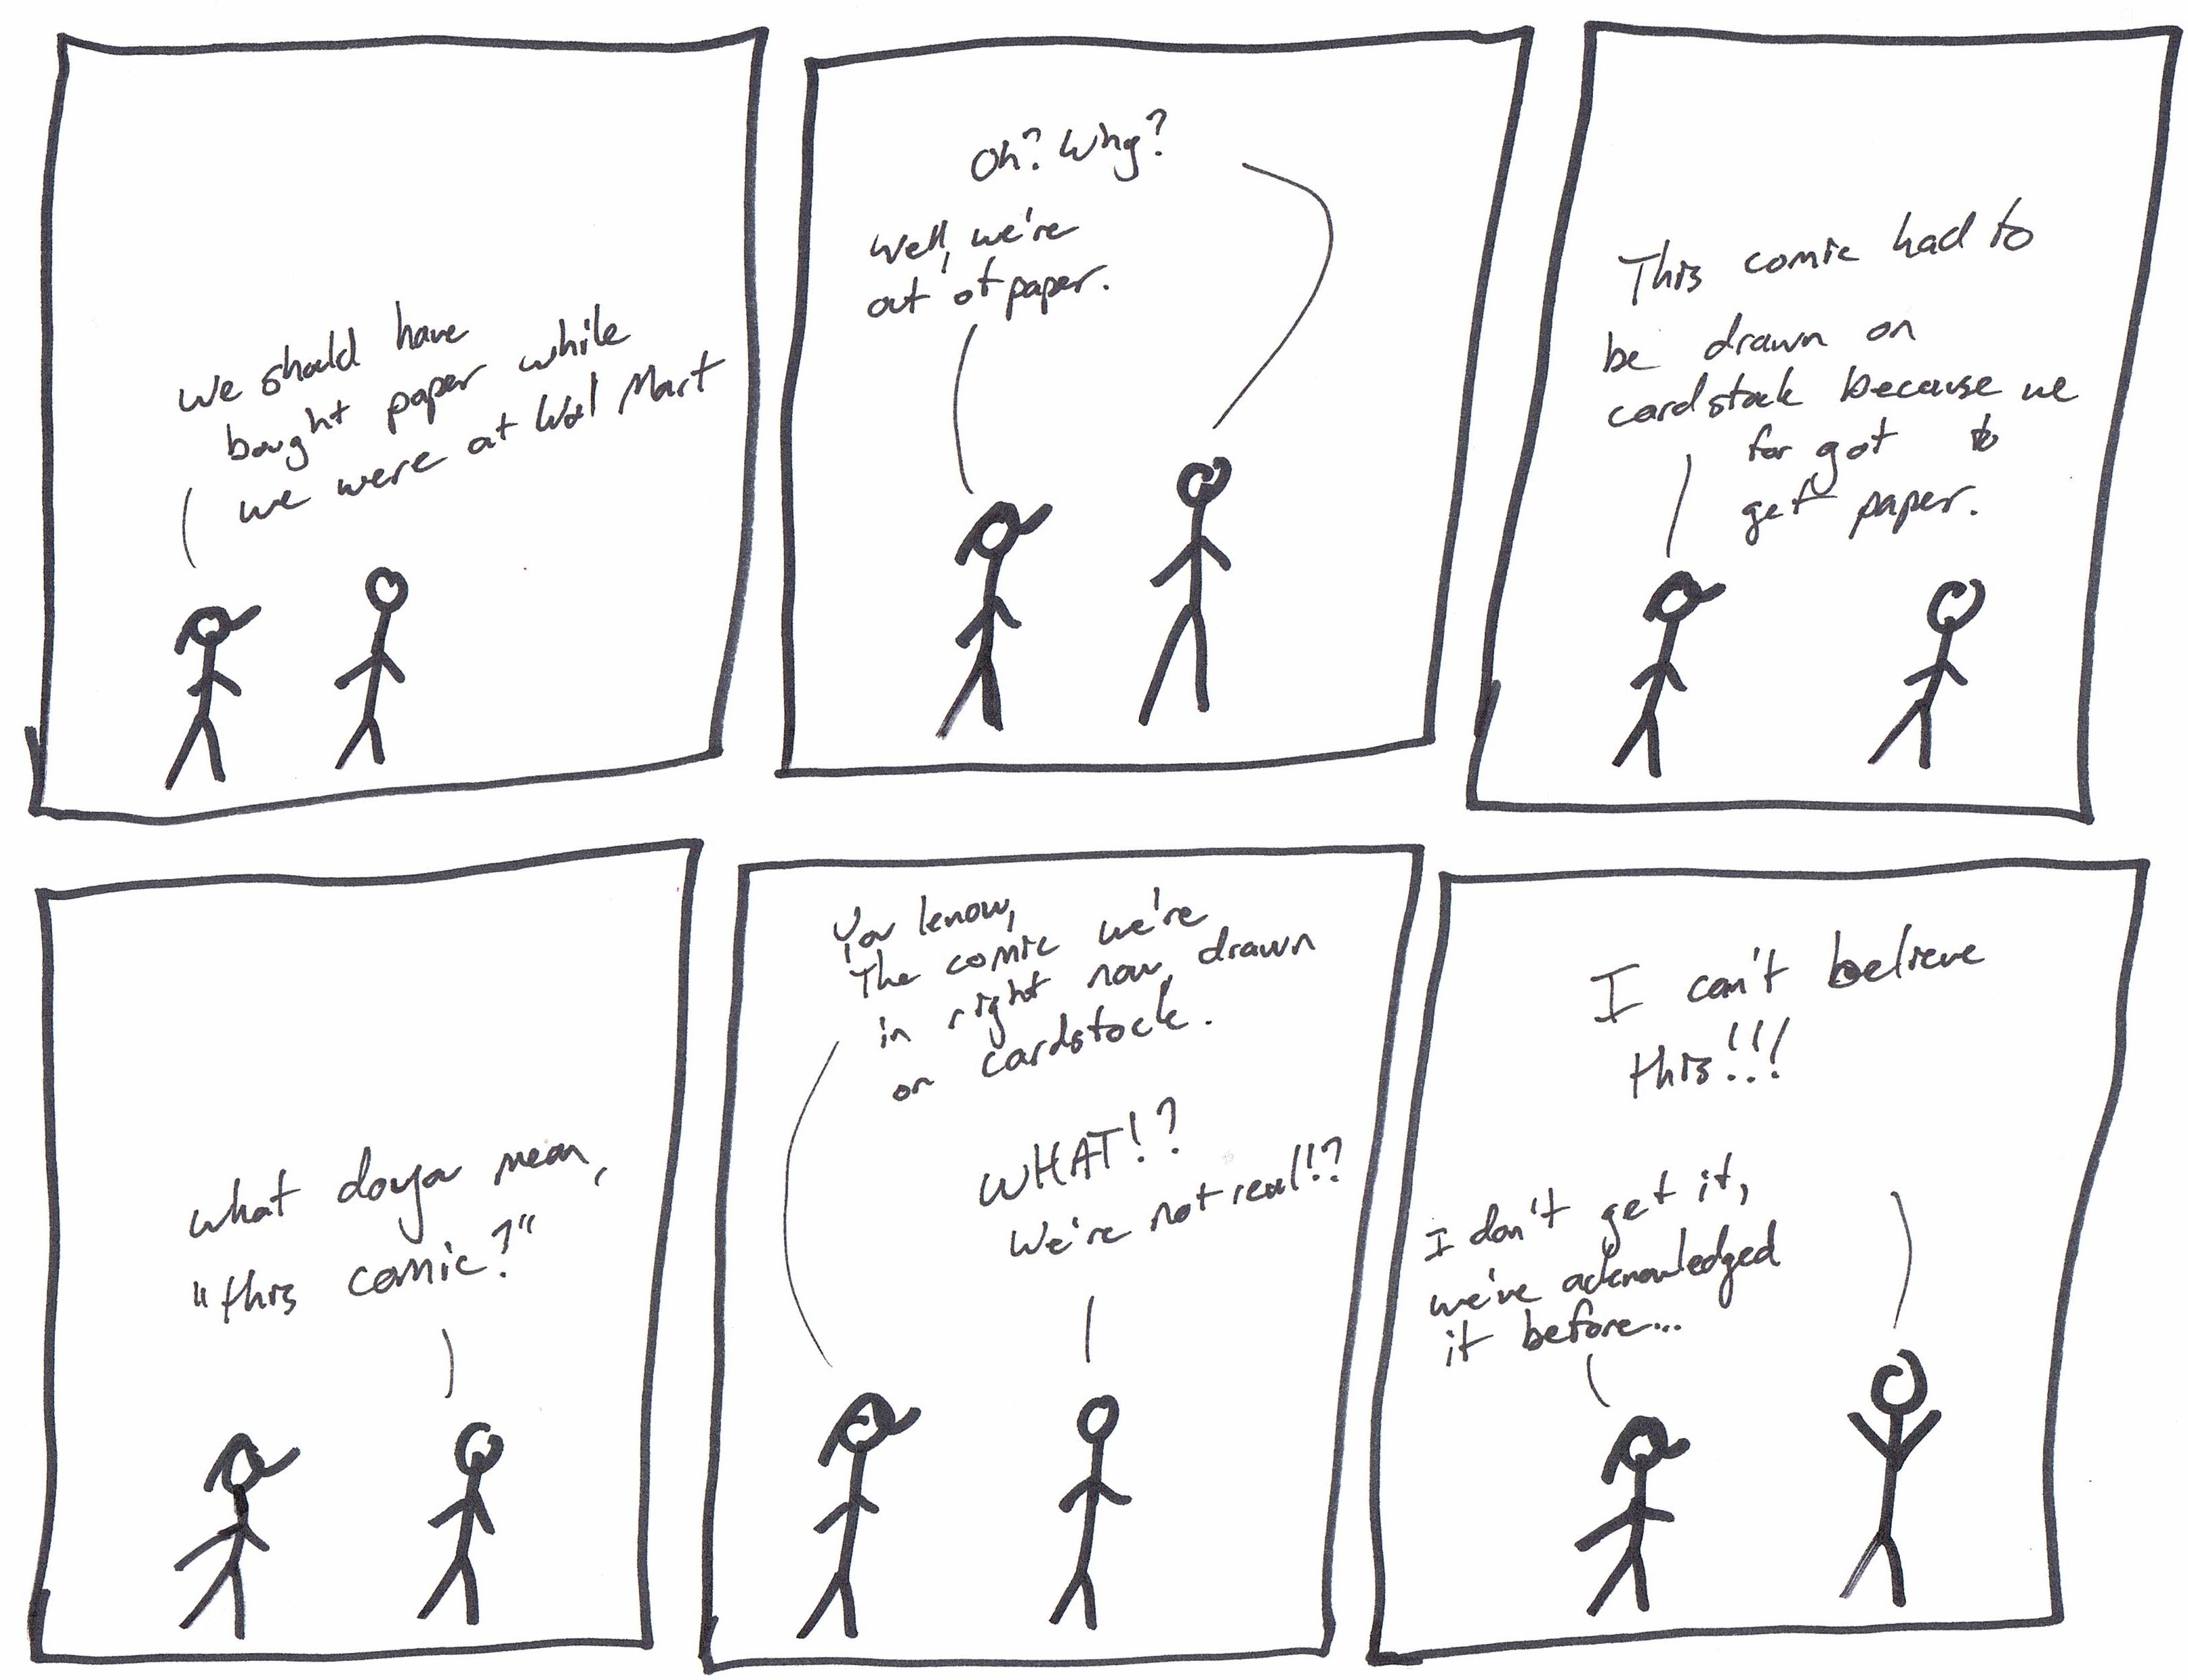 We should have
bought paper while
we were at Wal Mart
Oh? Why?
Well, we're
out of paper.
This comic had to
be drawn on
cardstock because we
forgot to
get paper.
What doya mean,
"this comic?"
You know,
The comic we're
in right now, drawn
on cardstock.
WHAT!?
We're not real!?
I can't believe
this!!!
I don't get it,
we've acknowledged
it before...